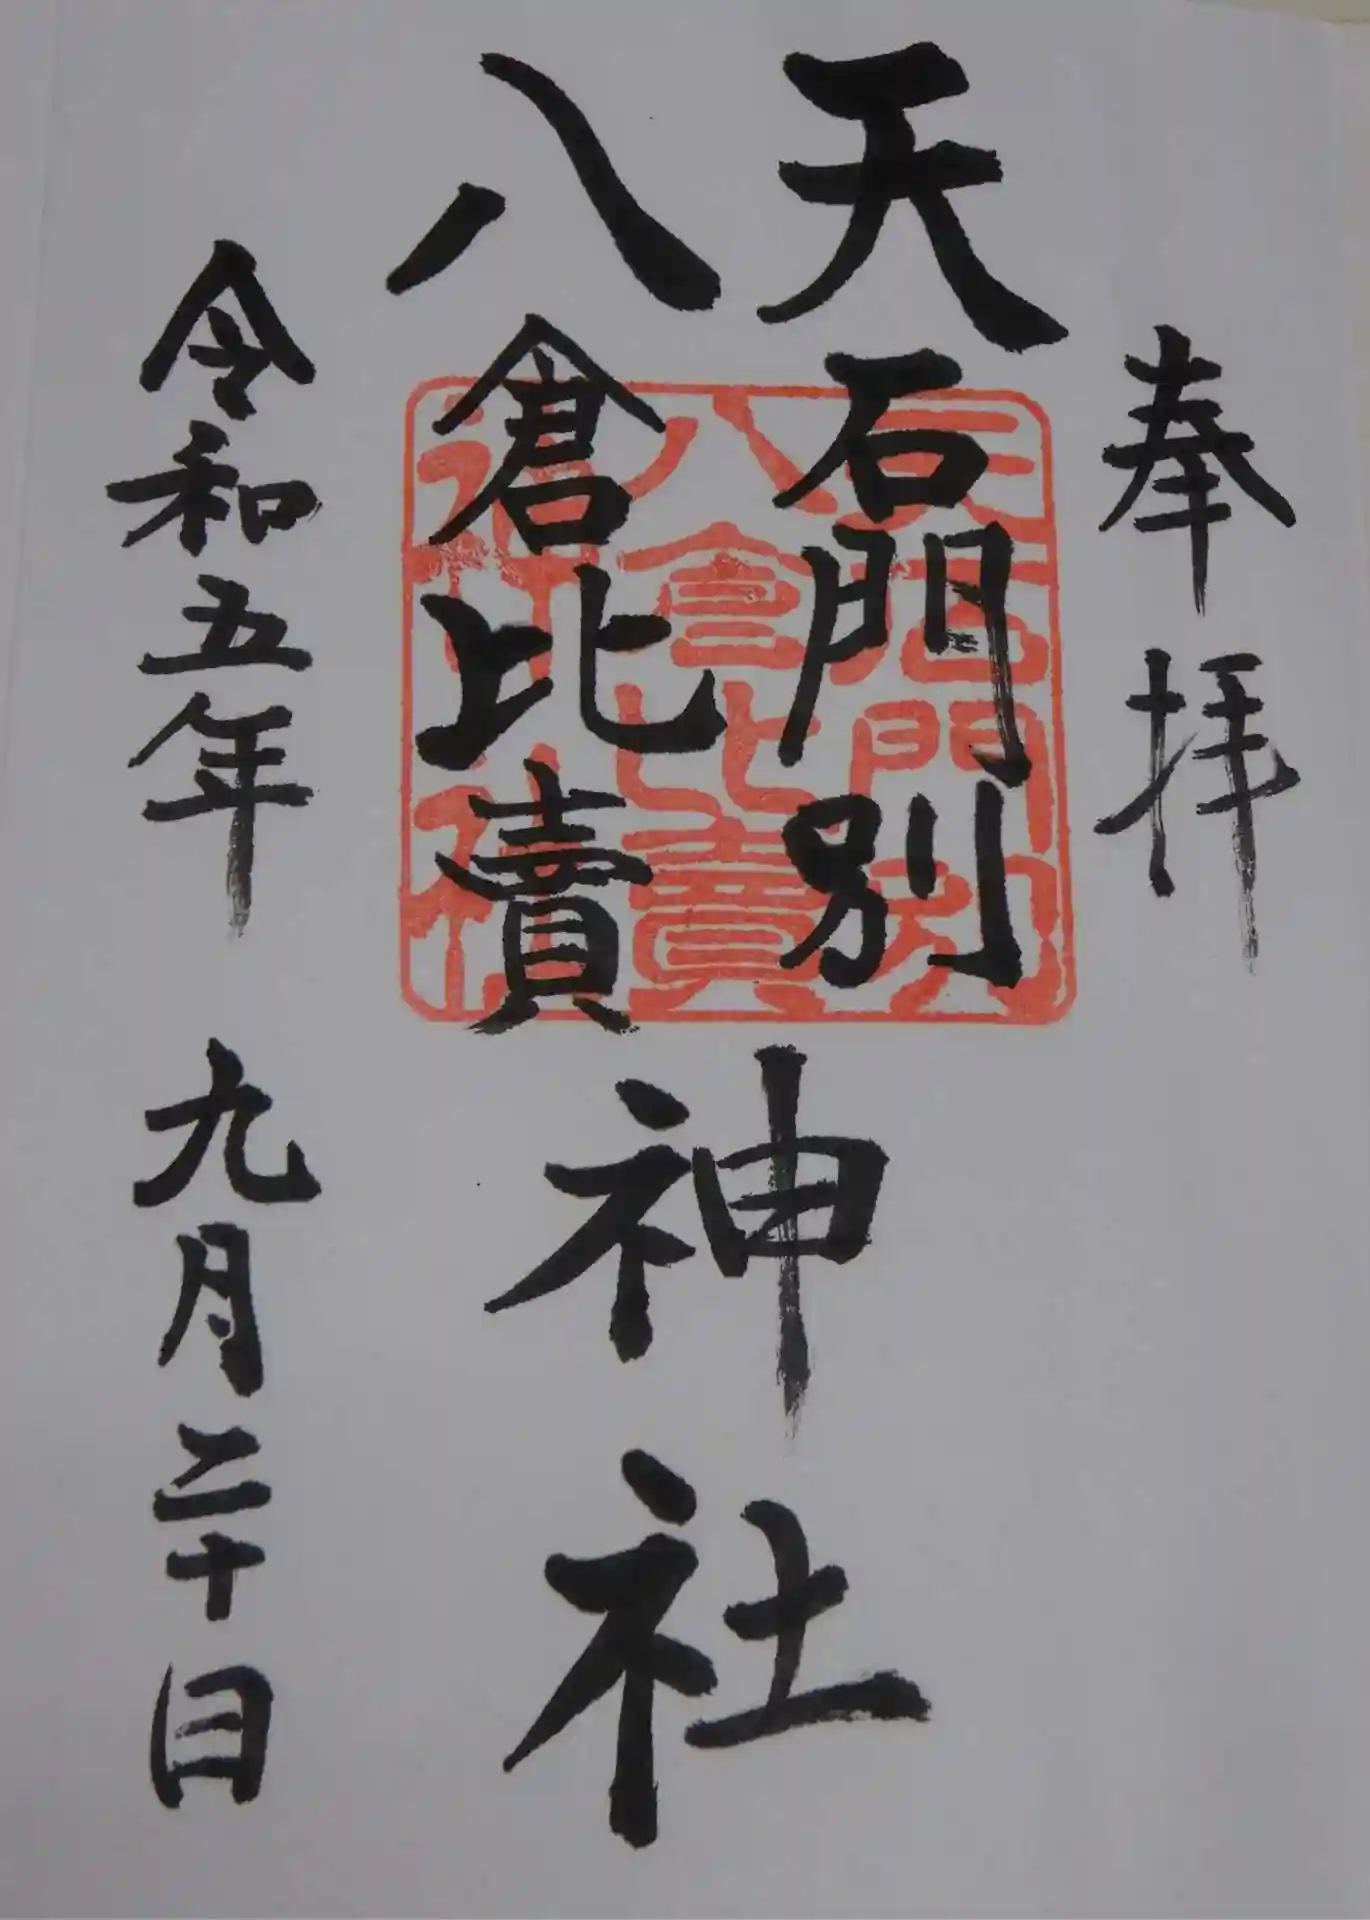 奉拝
天石門別
八倉比賣
神社
令和五年 九月二十日
天石門別
八倉比賣
神社